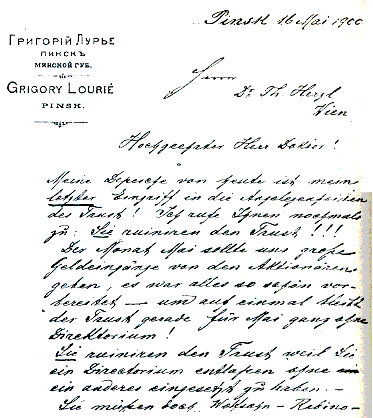 Pinsk 16 Mai 1900
ГРИГОРІЙ ЛУРЬЕ
ПИНСКЪ
МИНСКОЙ ГУБ.
GRIGORY LOURIÉ
PINSK.
Herrn
Dr. Th. Herzl
Wien
Hochgeehrter Herr Doktor!
Meine Depesche von heute ist mein
letzter Eingriff in die Angelegenheiten
des Trust! Ich rufe Ihnen nochmals
zu: Sie ruiniren den Trust!!!
Der Monat Mai sollte uns große
Geldeingänge von den Aktionären
geben, es war alles so schön vor-
bereitet — und auf einmal bleibt
der Trust gerade für Mai ganz ohne
Direktorium!
Sie ruiniren den Trust weil Sie
ein Directorium entlassen ohne
ein anderes eingesetzt zu haben. —
Sie müssen doch, Wolfsohn - Rabino-